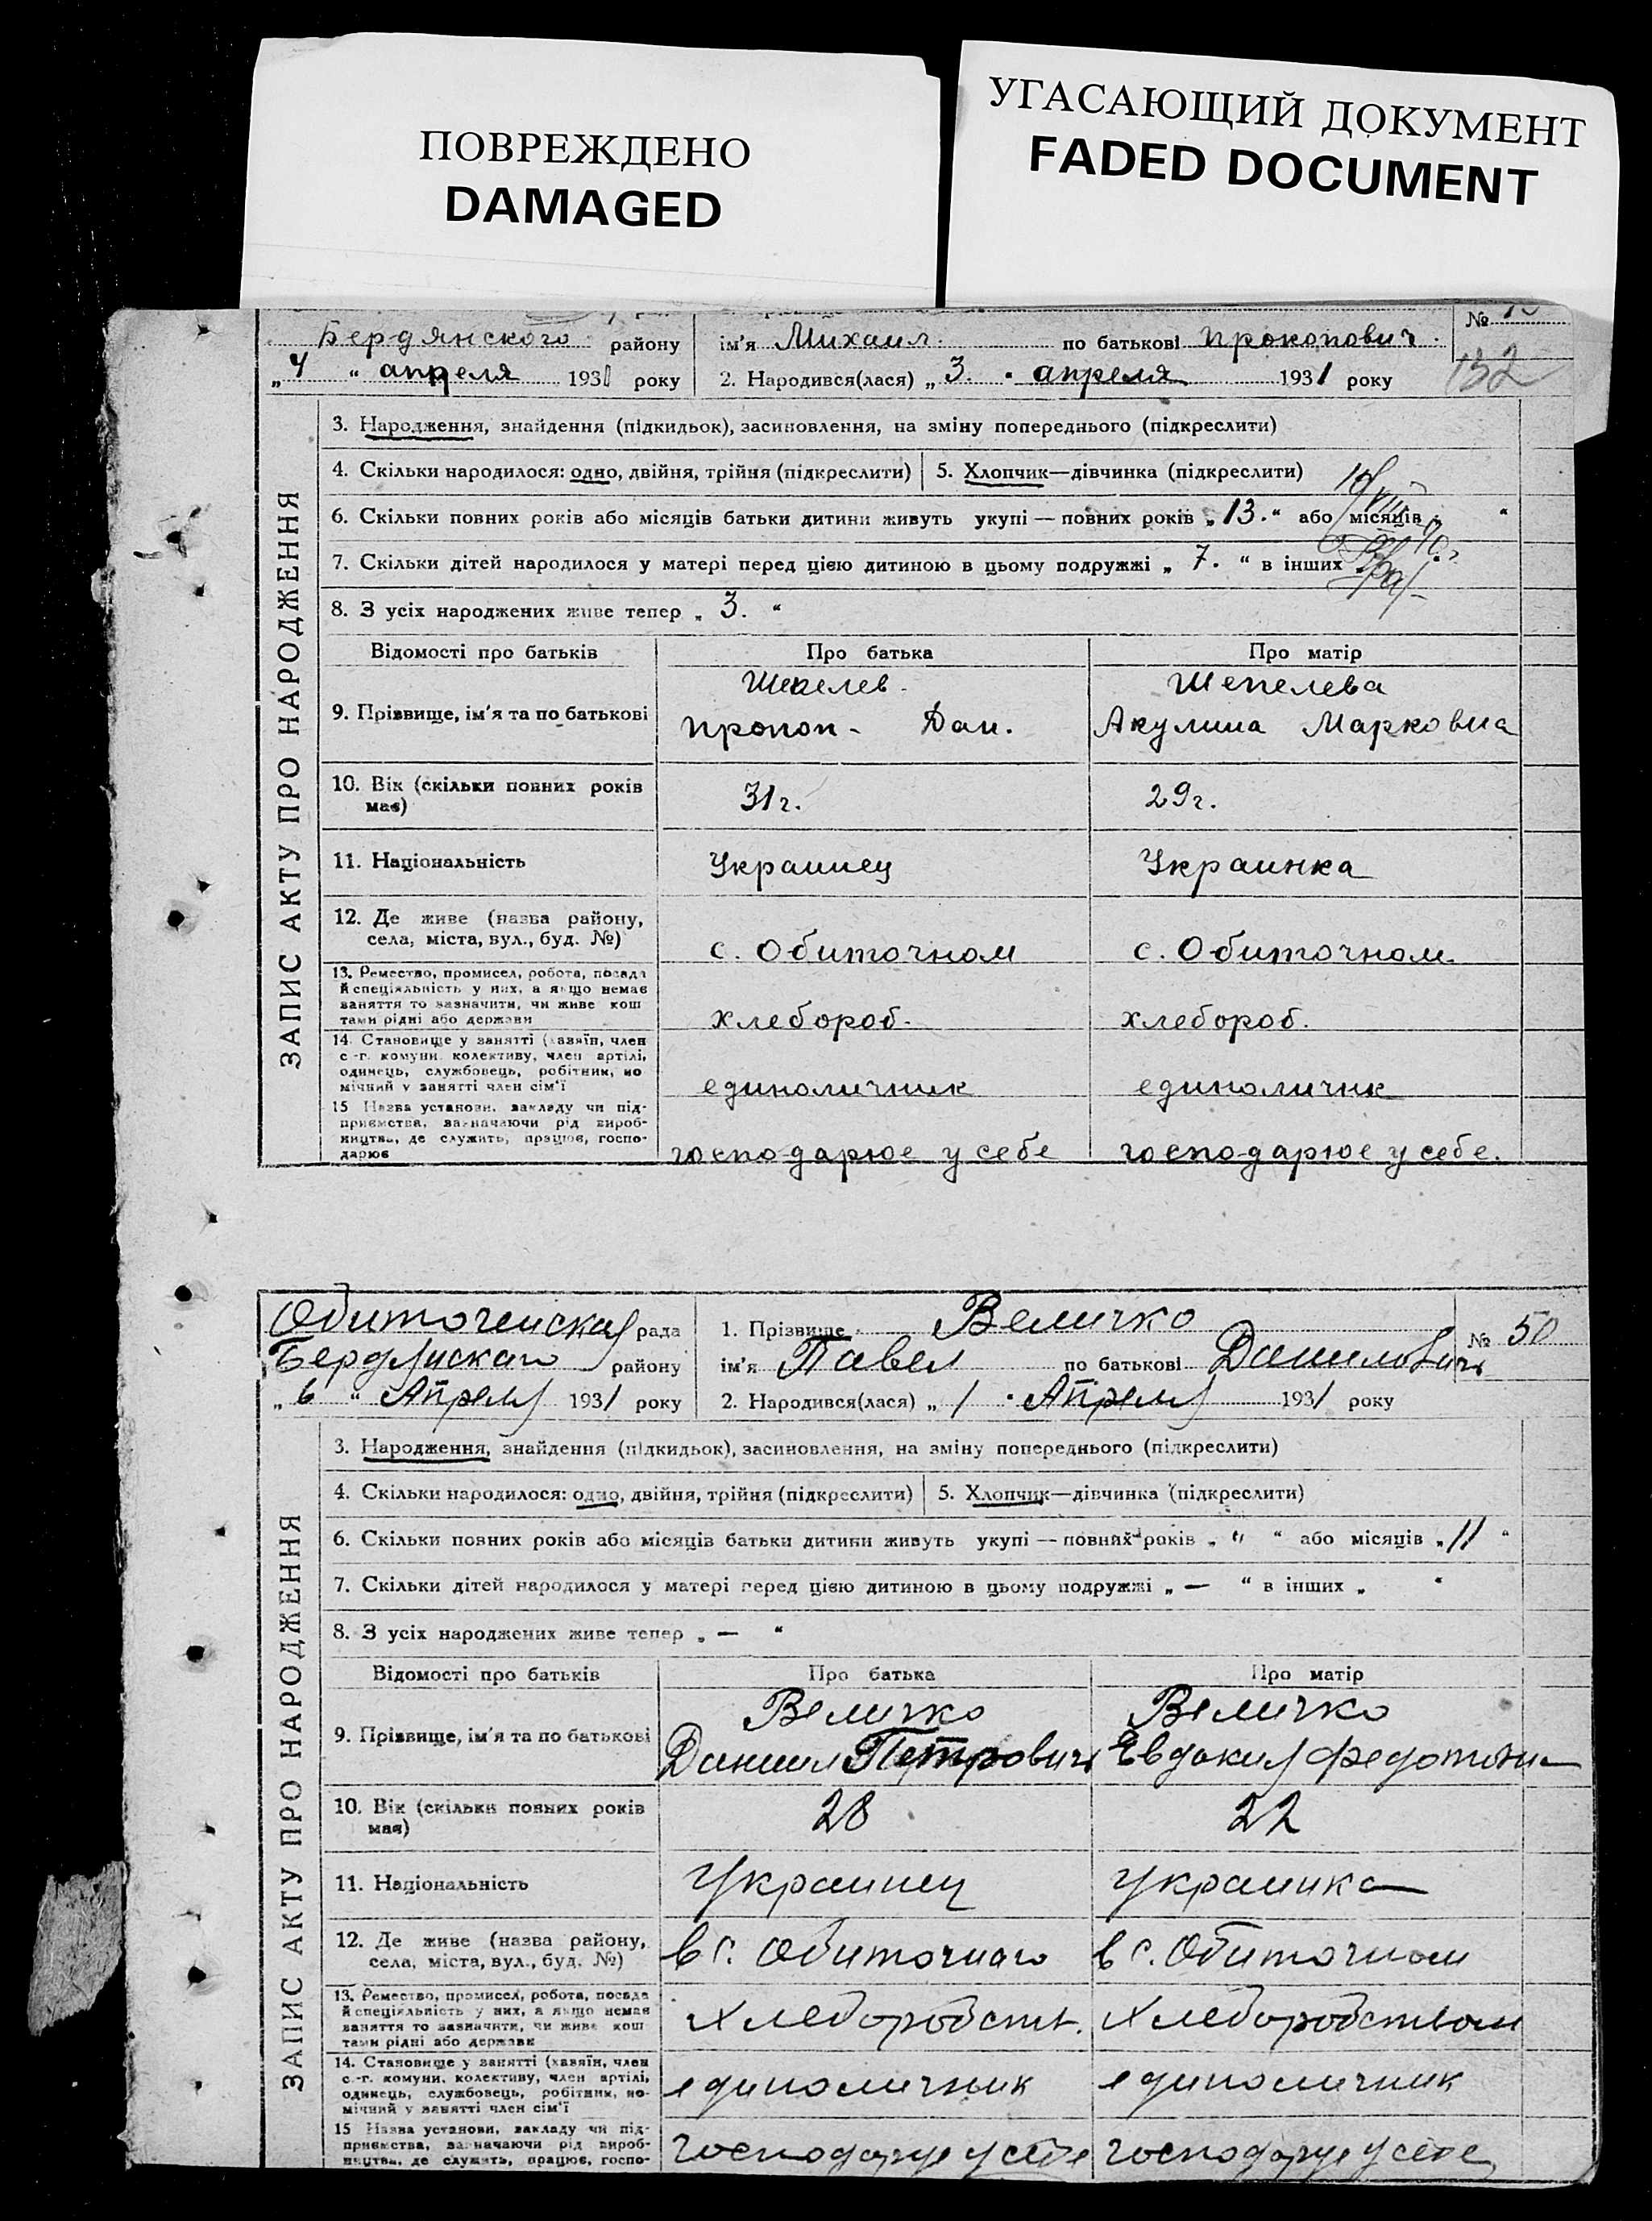 ПОВРЕЖДЕНО
DAMAGED
УГАСАЮЩИЙ ДОКУМЕНТ
FADED DOCUMENT
Бердянского району
ім'я Михаил. по батькові Прокопович.
№
132
„4 “ апреля 1931 року
2. Народився(лася) „ 3. “ апреля 1931 року
ЗАПИС АКТУ ПРО НАРОДЖЕННЯ
3. Народження, знайдення (підкидьок), засиновлення, на зміну попереднього (підкреслити)
4. Скільки народилося: одно, двійня, трійня (підкреслити)
5. Хлопчик—дівчинка (підкреслити)
6. Скільки повних років або місяців батьки дитини живуть укупі — повних років „ 13. “ або місяців „ “
7. Скільки дітей народилося у матері перед цією дитиною в цьому подружжі „ 7. “ в інших
8. З усіх народжених живе тепер „ 3. “
Відомості про батьків Про батька Про матір
9. Прізвище, ім'я та по батькові
Шепелев.
Прокоп - Дан.
Шепелева
Акулина Марковна
10. Вік (скільки повних років має)
31 г.
29 г.
11. Національність
Украинец
Украинка
12. Де живе (назва району,
села, міста, вул., буд. №)
с. Обиточном
с. Обиточном.
13. Ремество, промисел, робота, посада
й спеціяльність у них, а якщо немає
заняття то зазначити, чи живе кош
тами рідні або держави
хлебороб.
хлебороб.
14. Становище у занятті (хазяїн, член
с.-г. комуни, колективу, член артілі,
одинець, службовець, робітник, по
мічний у занятті член сім'ї
единоличник
единоличнк
15 Назва установи, закладу чи під-
приємства, зазначаючи рід вироб-
ництва, де служить, працює, госпо-
дарює
господарюе у себе
господарюе у себе.
Обиточенская рада
1. Прізвище Величко
№ 50
Бердянскаго району
ім'я Павел по батькові Данилович
„ 6 “ Апреля 1931 року
2. Народився(лася) „ 1 “ Апреля 1931 року
ЗАПИС АКТУ ПРО НАРОДЖЕННЯ
3. Народження, знайдення (підкидьок), засиновлення, на зміну попереднього (підкреслити)
4. Скільки народилося: одно, двійня, трійня (підкреслити)
5. Хлопчик—дівчинка (підкреслити)
6. Скільки повних років або місяців батьки дитини живуть укупі — повних років „ “ “ або місяців „ 11 “
7. Скільки дітей народилося у матері перед цією дитиною в цьому подружжі „ — “ в інших „ “
8. З усіх народжених живе тепер „ — “
Відомості про батьків Про батька Про матір
9. Прізвище, ім'я та по батькові
Величко
Даниил Петрович
Величко
Евдокия Федотовна
10. Вік (скільки повних років має)
28
22
11. Національність
Украинец
Украинка
12. Де живе (назва району,
села, міста, вул., буд. №)
в с. Обиточнаго
в с. Обиточном
13. Ремество, промисел, робота, посада
й спеціяльність у них, а якщо немає
заняття то зазначити, чи живе кош
тами рідні або держави
Хлеборобств.
Хлеборобством
14. Становище у занятті (хазяїн, член
с.-г. комуни, колективу, член артілі,
одинець, службовець, робітник, по-
мічний у занятті член сім'ї
единоличник
единоличник
15 Назва установи, закладу чи під-
приємства, зазначаючи рід вироб-
ництва, де служить, працює, госпо-
господарує у себе
господарує у себе